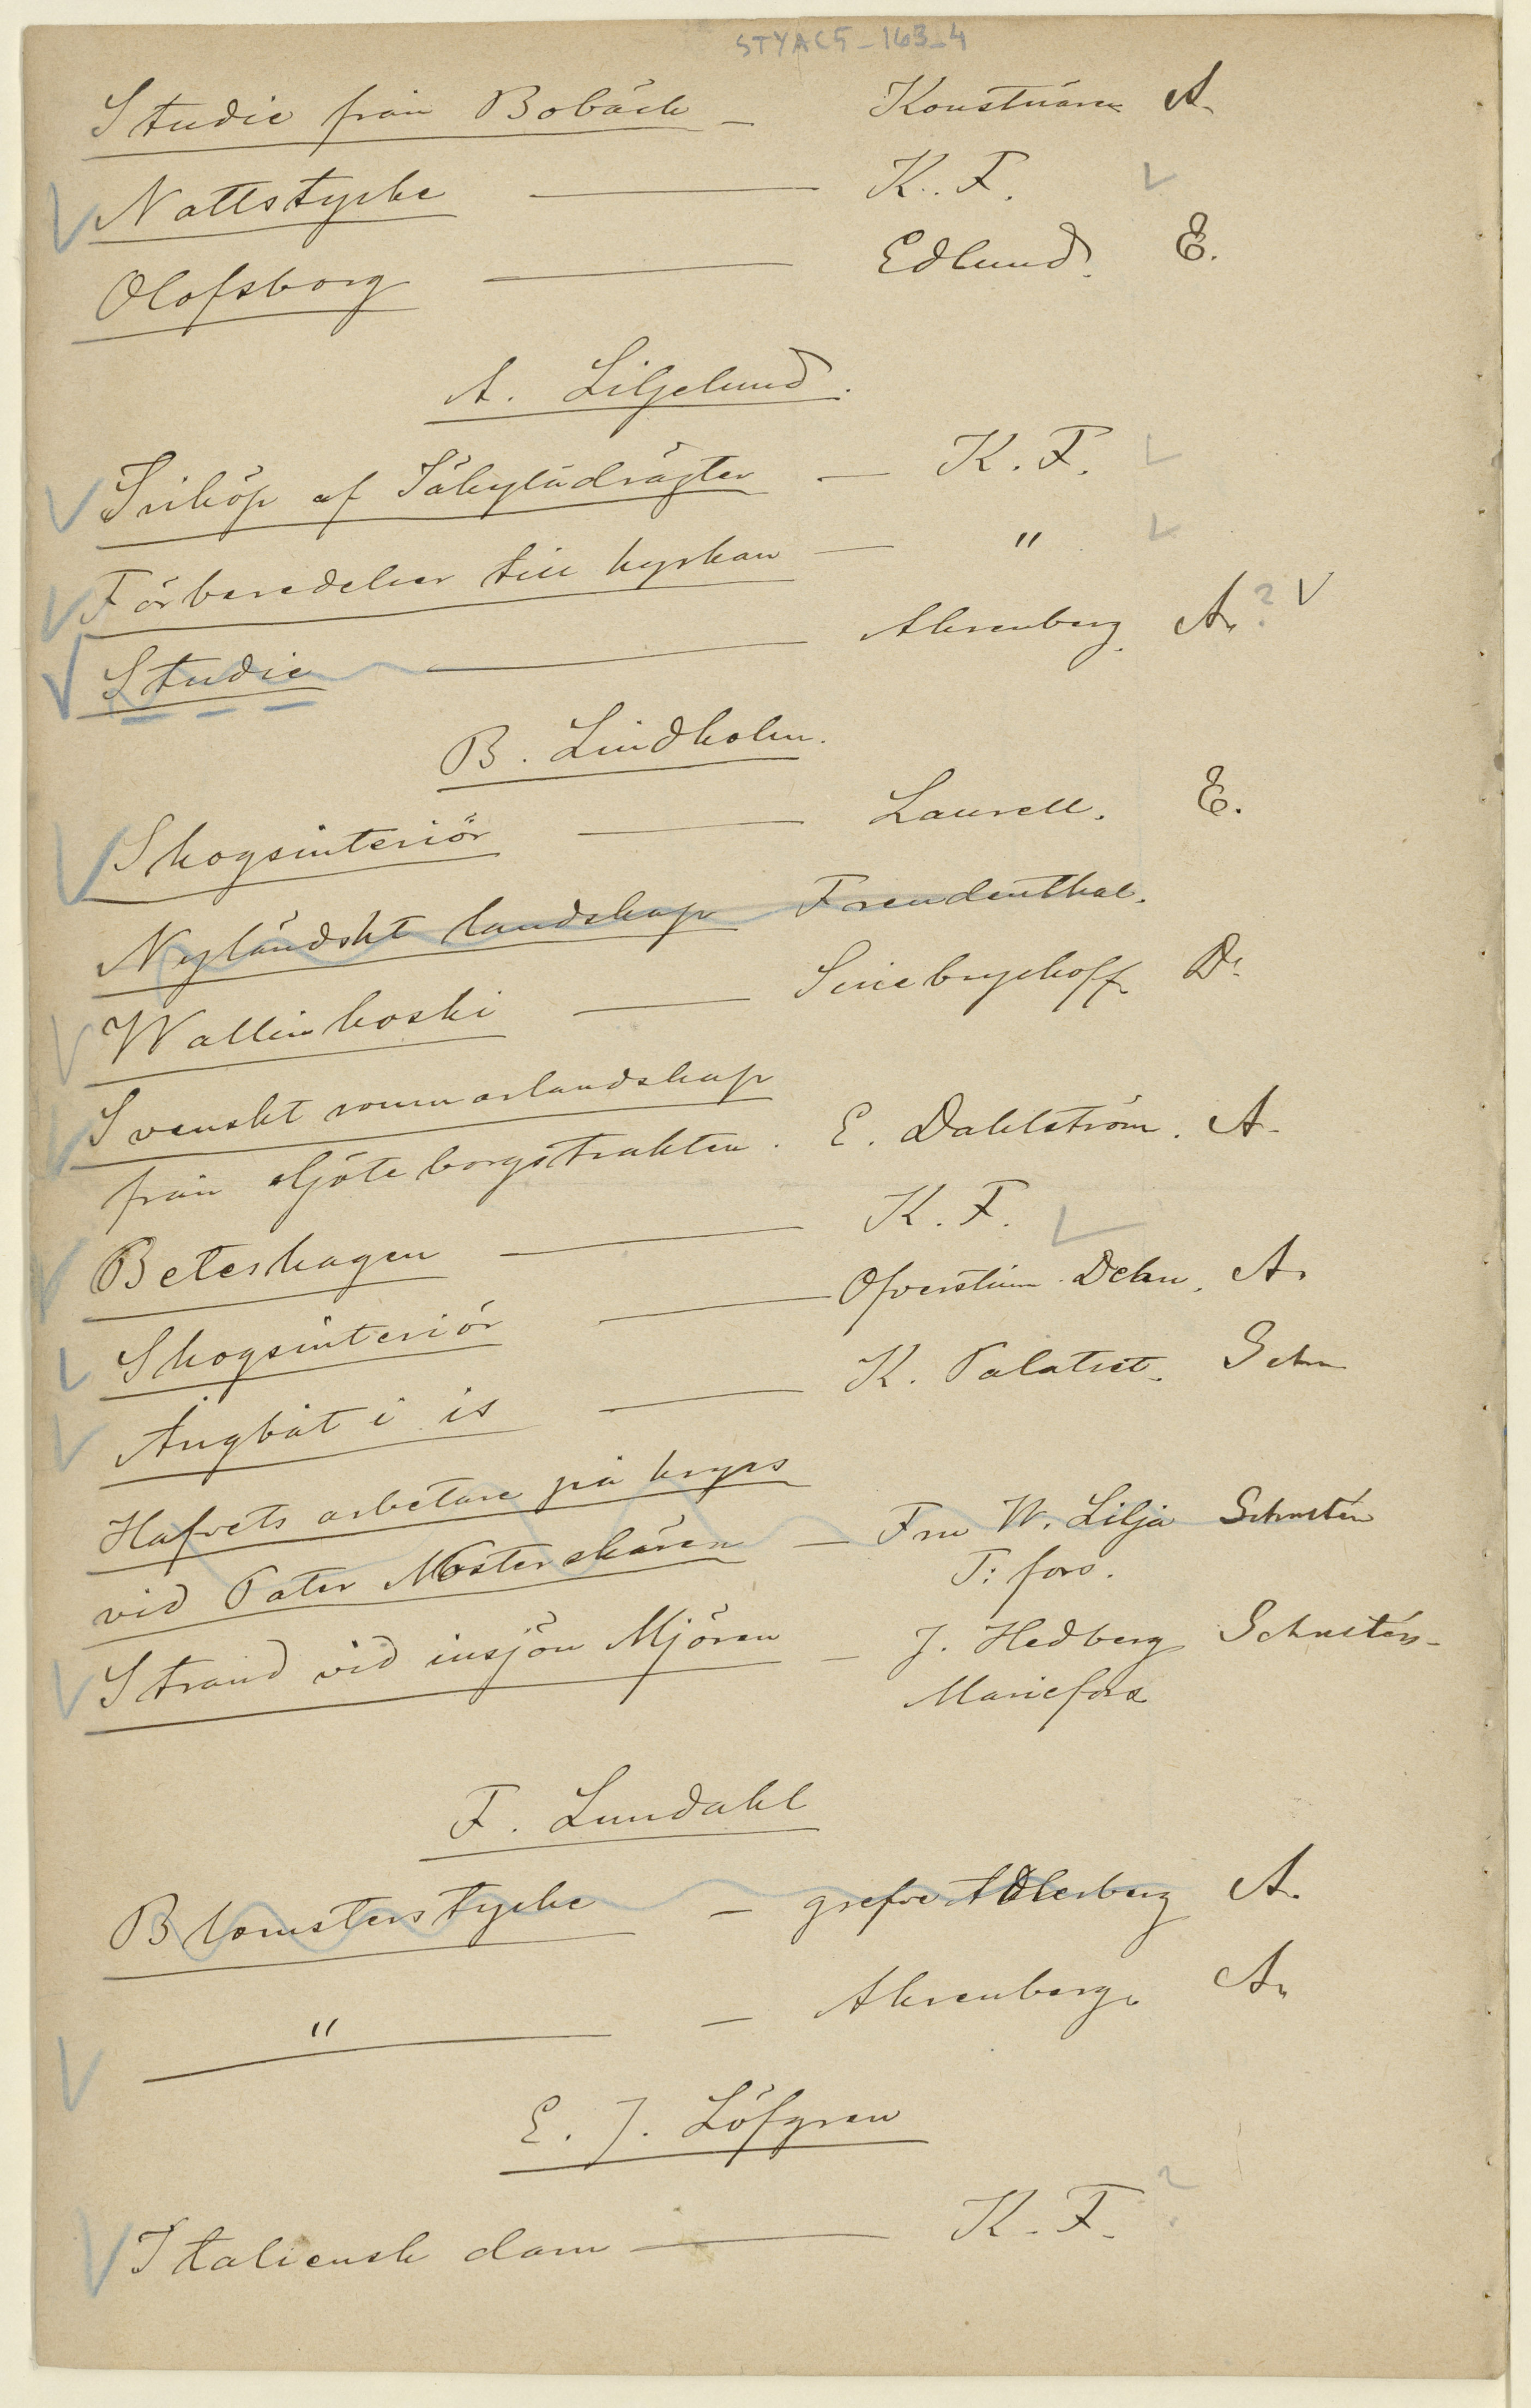 STYAC5-163-4
Studie från Bobäck — Konstnären A.
V Nattstycke — K. F. V
Olofsborg — Edlund. E.
A. Liljelund.
V Inköp af Säkylädrägter — K. F. V
V Förberedelser till kyrkan — " V
V Studie — Ahrenberg. A. ? V
B. Lindholm.
V Skogsinteriör — Laurell. E.
Nyländskt landskap Freudenthal.
V Wallinkoski — Sinebrychoff D.
V Svenskt sommarlandskap
från Göteborgstrakten. E. Dahlström. A.
V Beteshagen — K. F. V
V Skogsinteriör — Öfverstinn. Dehn. A.
V Ångbåt i is — K. Palatset. Schn
Hafvets arbetare på kryss
vid Pater Nosterskären — Fru W. Lilja Schustén
T:fors.
V Strand vid insjön Mjören — J. Hedberg Schustén-
Mariefors
F. Lundahl
Blomsterstycke — grefve Adlerberg A.
V " — Ahrenberg. A.
E. J. Löfgren
V Italiensk dam — K. F. ?